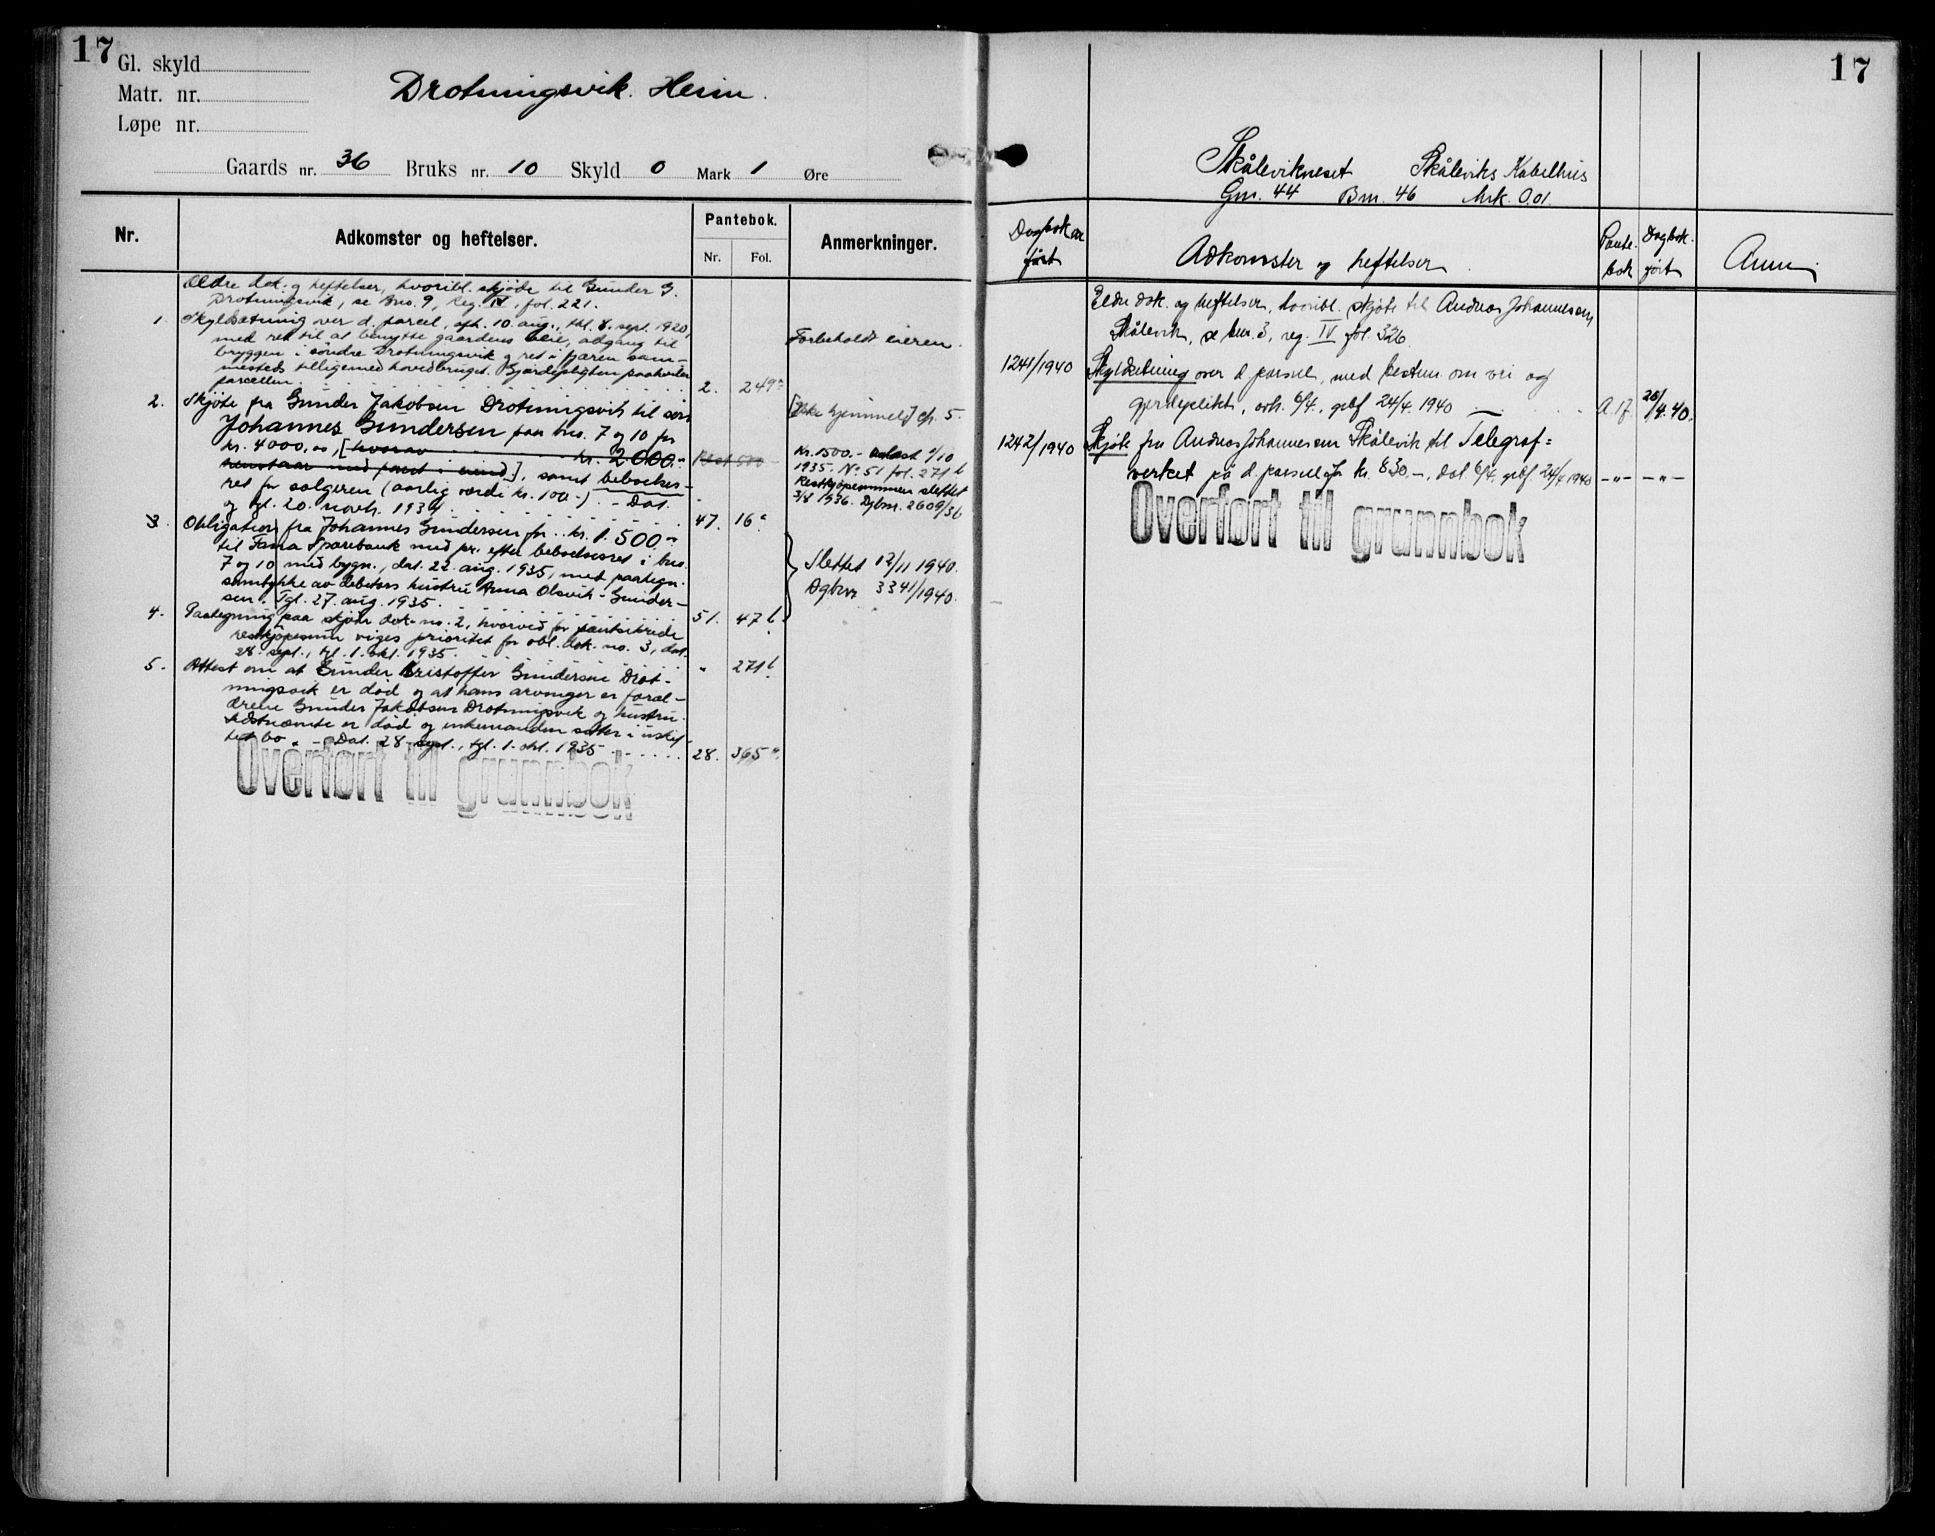 17
Gl. skyld
Matr. nr.
Løpe nr.
Drotningsvik Heim.
Gaards nr. 36 Bruks nr. 10 Skyld 0 Mark 1 Øre
Nr.
Adkomster og heftelser.
Pantebok.
Nr. Fol.
Anmerkninger.
Ældre dok. og heftelser, hvoribl. skjøde til Gunder G.
Drotningsvik, se Bno. 9, Reg. IV, fol. 221.
1. Skyldsætning over d. parcel, afh. 10. aug., tgl. 8. sept. 1920,
med ret til at benytte gaardens veie, adgang til
bryggen i søndre Drotningsvik og ret i fjæren sam-
mesteds tilligemed hovedbruget. Gjærdepligten paahviler
parcellen. 2. 249a
Forbeholdt eieren.
2. Skjøte fra Gunder Jakobsen Drotningsvik til søn
Johannes Gundersen paa bno. 7 og 10 for
kr. 4000,00, [hvorav kr. 2000.-
henstaar med pant i eiend.], samt beboelses-
ret for sælgeren (aarlig værdi kr. 100.-) - Dat.
og tgl. 20. novb. 1934. 47. 16a
[Ikke hjemmel] cfr. 5.
kr. 1500.- avlæst 1/10
1935. No. 51 fol. 271b
Restkjøpesummen slettet
3/8 1936. Dgbnr. 2609/36
3. Obligation fra Johannes Gundersen for kr. 1.500.-
til Fana Sparebank med pr. efter beboelsesret i bno.
7 og 10 med bygn., dat. 22. aug. 1935, med paategn.
samtykke av debitors hustru Anna Olsvik-Gunder-
sen. Tgl. 27. aug. 1935. 51. 47b
Slettet 12/11 1940.
Dgbnr 3341/1940.
4. Paategning paa skjøte dok. no. 2, hvorved for pantsikrede
restkjøpesum viges prioritet for obl. dok. no. 3, dat.
28. sept., tgl. 1. okt. 1935. " 271b
5. Attest om at Gunder Kristoffer Gundersen Drot-
ningsvik er død og at hans arvinger er foræl-
drene Gunder Jakobsen Drotningsvik og hustru.
Sistnævnte er død og enkemanden sitter i uskif-
tet bo. - Dat. 28. sept., tgl. 1. okt. 1935. 28. 365a.
Overført til grunnbok
17
Skålevikneset Skåleviks Kabelhus
Gnr. 44 Bnr. 46 Mrk. 0.01.
Dagbok nr ført
Adkomster og heftelser
Pante-bok
Dagbok. ført
Anm.
Eldre dok. og heftelser, hvoribl. skjøte til Andreas Johannessen
Skålevik, se bnr. 3, reg. IV fol. 326.
1241/1940 Skyldsetning over d. parsel, med bestem. om vei og
gjerdeplikt, avh. 6/4., gebf. 24/4. 1940 A. 17. 26/4. 40.
1242/1940 Skjøte fra Andreas Johannessen Skålevik til Telegraf=
verket på d. parsel for kr. 830.-, dat. 6/4. gebf. 24/4 1940 -"- -"-
Overført til grunnbok